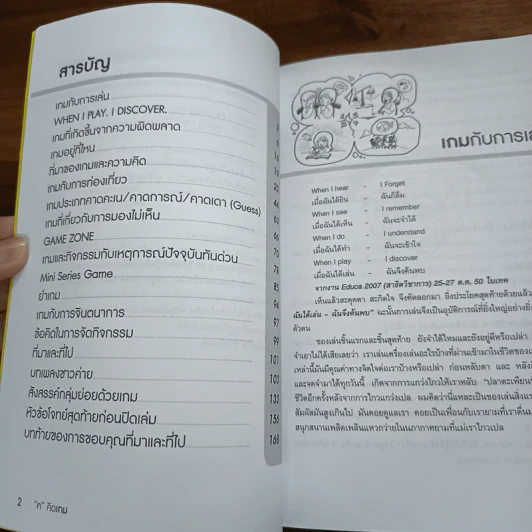 สารบัญ
เกมกับการเล่น
WHEN I PLAY. I DISCOVER.
เกมที่เกิดขึ้นจากความผิดพลาด
เกมอยู่ที่ไหน
ที่มาของเกมและความคิด
เกมกับการท่องเที่ยว
เกมประเภทคาดคะเน/คาดการณ์/คาดเดา (Guess)
เกมที่เกี่ยวกับการมองไม่เห็น
GAME ZONE
เกมและกิจกรรมกับเหตุการณ์ปัจจุบันทันด่วน
Mini Series Game
ยำเกม
เกมกับการจินตนาการ
ข้อคิดในการจัดกิจกรรม
ที่มาและที่ไป
บทเพลงชาวค่าย
สังสรรค์กลุ่มย่อยด้วยเกม
หัวข้อโจทย์สุดท้ายก่อนปิดเล่ม
บทท้ายของการขอบคุณที่มาและที่ไป
16
44
61
66
70
78
85
94
97
99
101
103
133
156
168
2 "ค" คิดเกม
เกมกับการเ
When I hear - I Forget
เมื่อฉันได้ยิน - ฉันก็ลืม
When I see - I remember
เมื่อฉันได้เห็น - ฉันจะจำได้
When I do - I understand
เมื่อฉันได้ทำ - ฉันจะเข้าใจ
When I play - I discover
เมื่อฉันได้เล่น - ฉันจึงค้นพบ
จากงาน Educa 2007 (สาธิตวิชาการ) 25-27 ต.ค. 50 ไบเทค
เห็นแล้วสะดุดตา สะกิดใจ จึงคัดลอกมา ยิ่งประโยคสุดท้ายด้วยแล้ว
ฉันได้เล่น - ฉันจึงค้นพบ" ฉะนั้นการเล่นจึงเป็นอุบัติการณ์ที่ยิ่งใหญ่อย่าง
ของเล่นชิ้นแรกและชิ้นสุดท้าย ยังจำได้ไหมและยังอยู่ดีหรือเปล่า
จำเอาไม่ได้เสียเลยว่า เราเล่นเครื่องเล่นอะไรบ้างที่ผ่านเข้ามาในชีวิตของเ
เหล่านี้มันมีคุณค่าทางจิตใจต่อเราบ้างหรือเปล่า ก่อนหลับตา และ หลัง
และจดจำมาได้ทุกวันนี้ เกิดจากการแกว่งไกวให้เราหลับ
ชีวิตอีกครั้งหลังจากการไกวแกว่งเปล ผมคิดว่านี่แหละเป็นของเล่นสิ่งแร
สัมผัสมันสูงเกินไป มันคอยดูแลเรา คอยเป็นเพื่อนกับเรายามที่เราตื่น
สนุกสนานเพลิดเพลินแหวกว่ายในนภากาศยามที่แม่เราไกวเปล